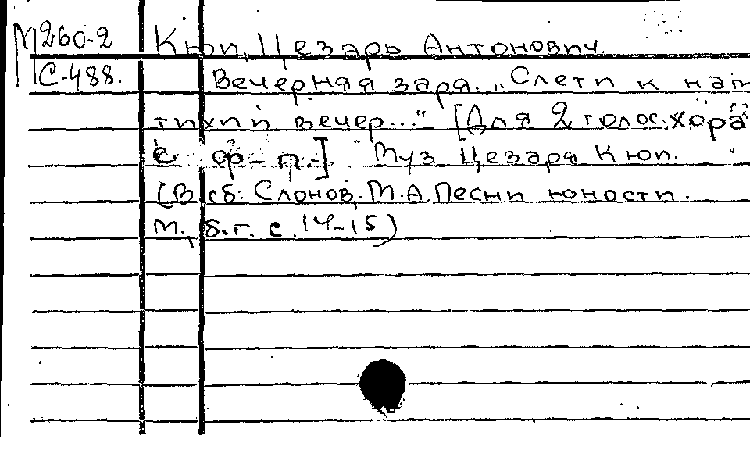 М260-2 Кюи, Цезарь Антонович
С-488. Вечерняя заря. "Слети к нам
тихий вечер..." [Для 2 голос. хора
с ф-п.] Муз. Цезаря Кюи.
(В сб: Слонов, М.А. Песни юности.
М., б.г. с. 14-15)